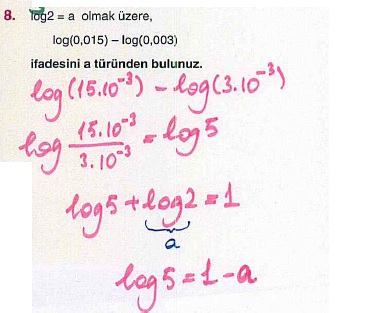 8. log2 = a olmak üzere,
log(0,015) – log(0,003)
ifadesini a türünden bulunuz.
log(15.10⁻³) - log(3.10⁻³)
log 15.10⁻³ / 3.10⁻³ = log5
log5 + log2 = 1
a
log5 = 1 - a